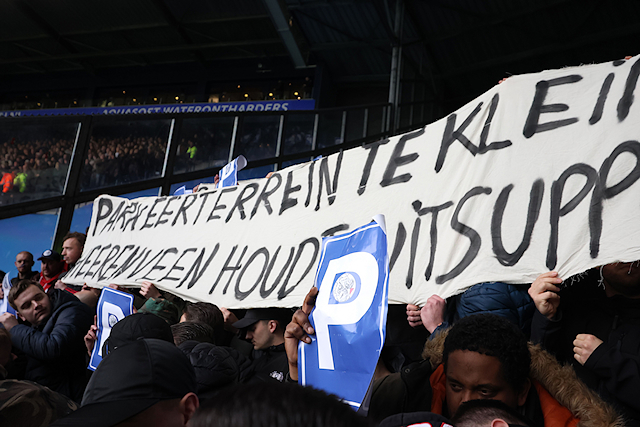 AQUASOFT WATERONTHARDERS
PARKEERTERREIN TE KLEI
HEERENVEEN HOUDT UITSUPP
P
P